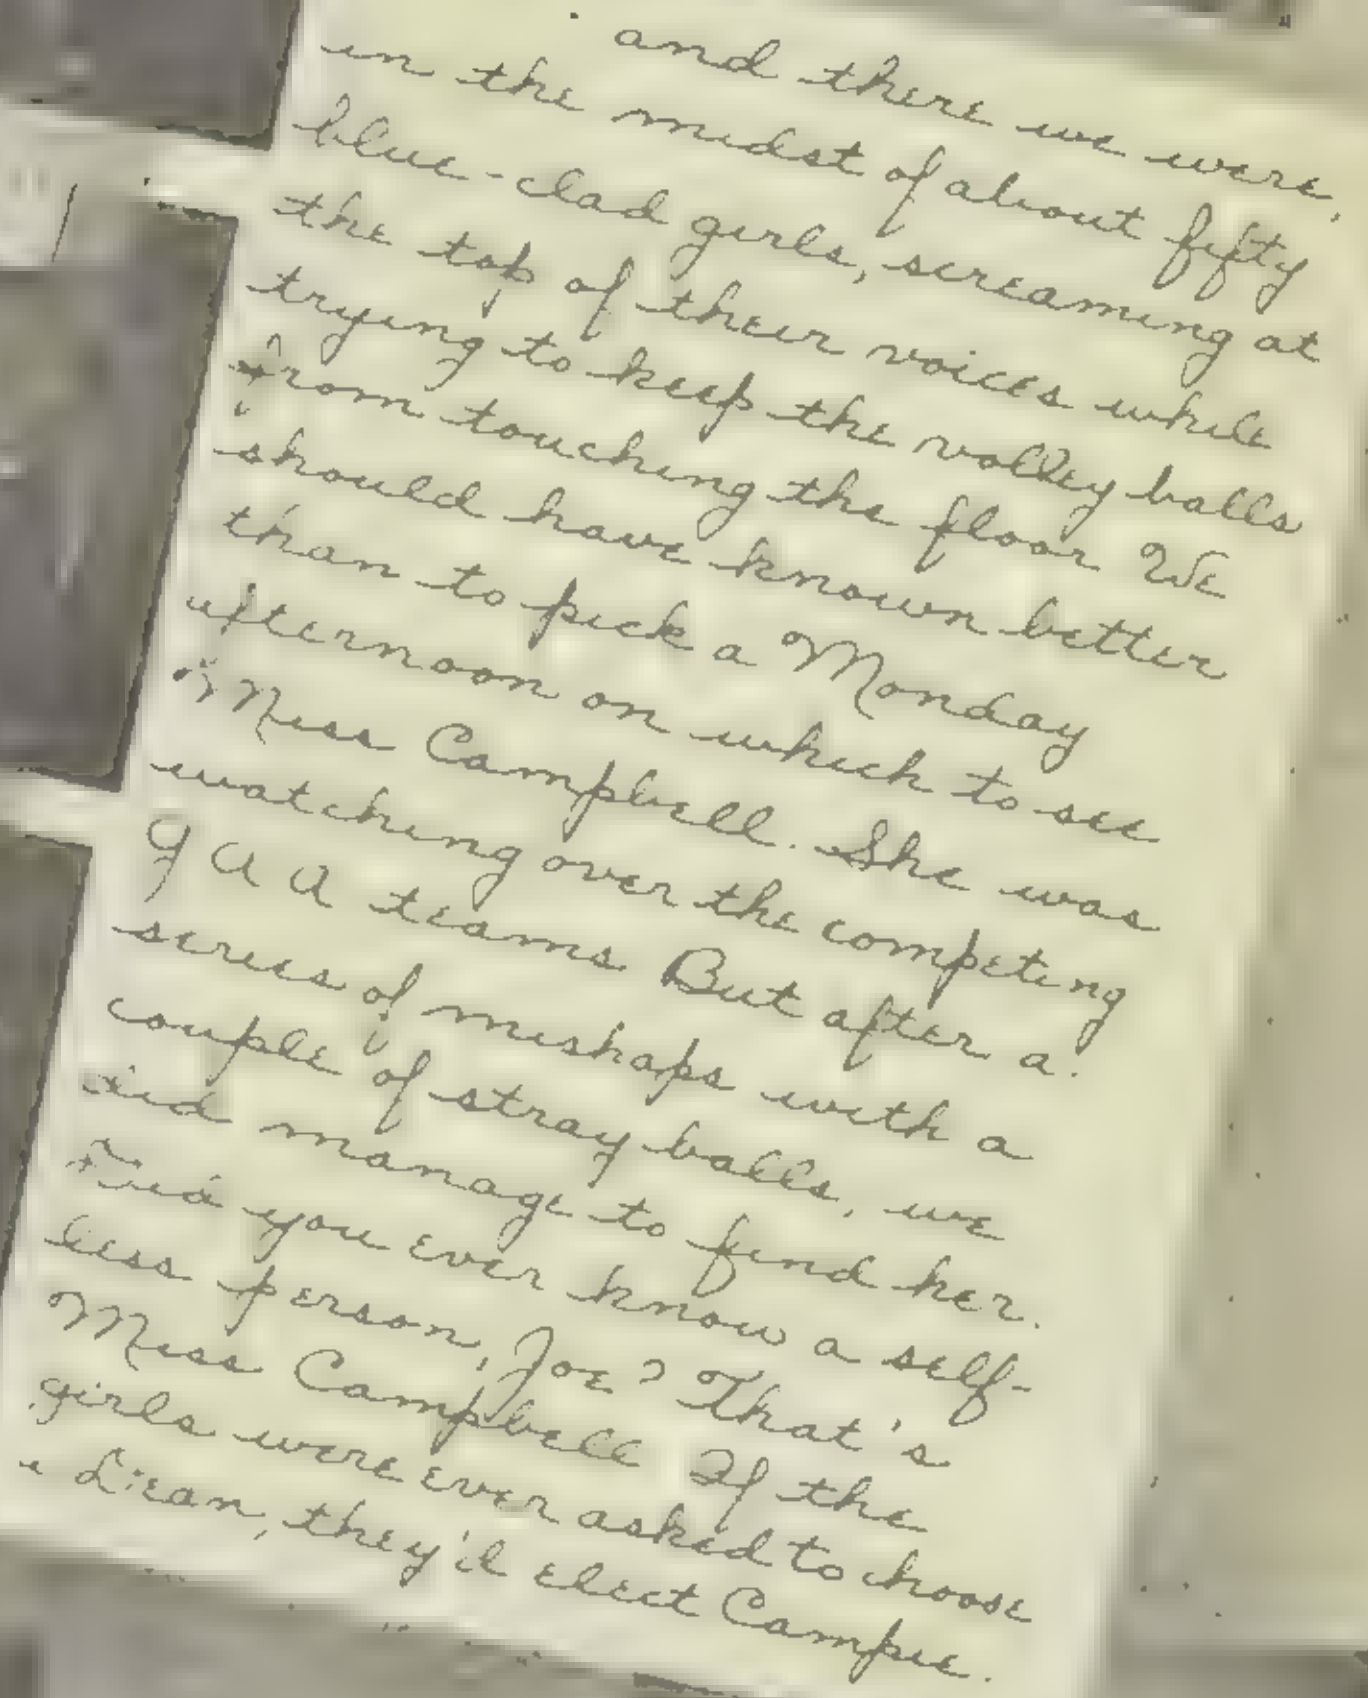 and there we were,
in the midst of about fifty
blue-clad girls, screaming at
the top of their voices while
trying to keep the volley balls
from touching the floor We
should have known better
than to pick a Monday
afternoon on which to see
Miss Campbell. She was
watching over the competing
G A A teams But after a
series of mishaps with a
couple of stray balls, we
did manage to find her.
Did you ever know a self-
less person, Joe? That's
Miss Campbell If the
girls were ever asked to choose
a Dean, they'd elect Campie.